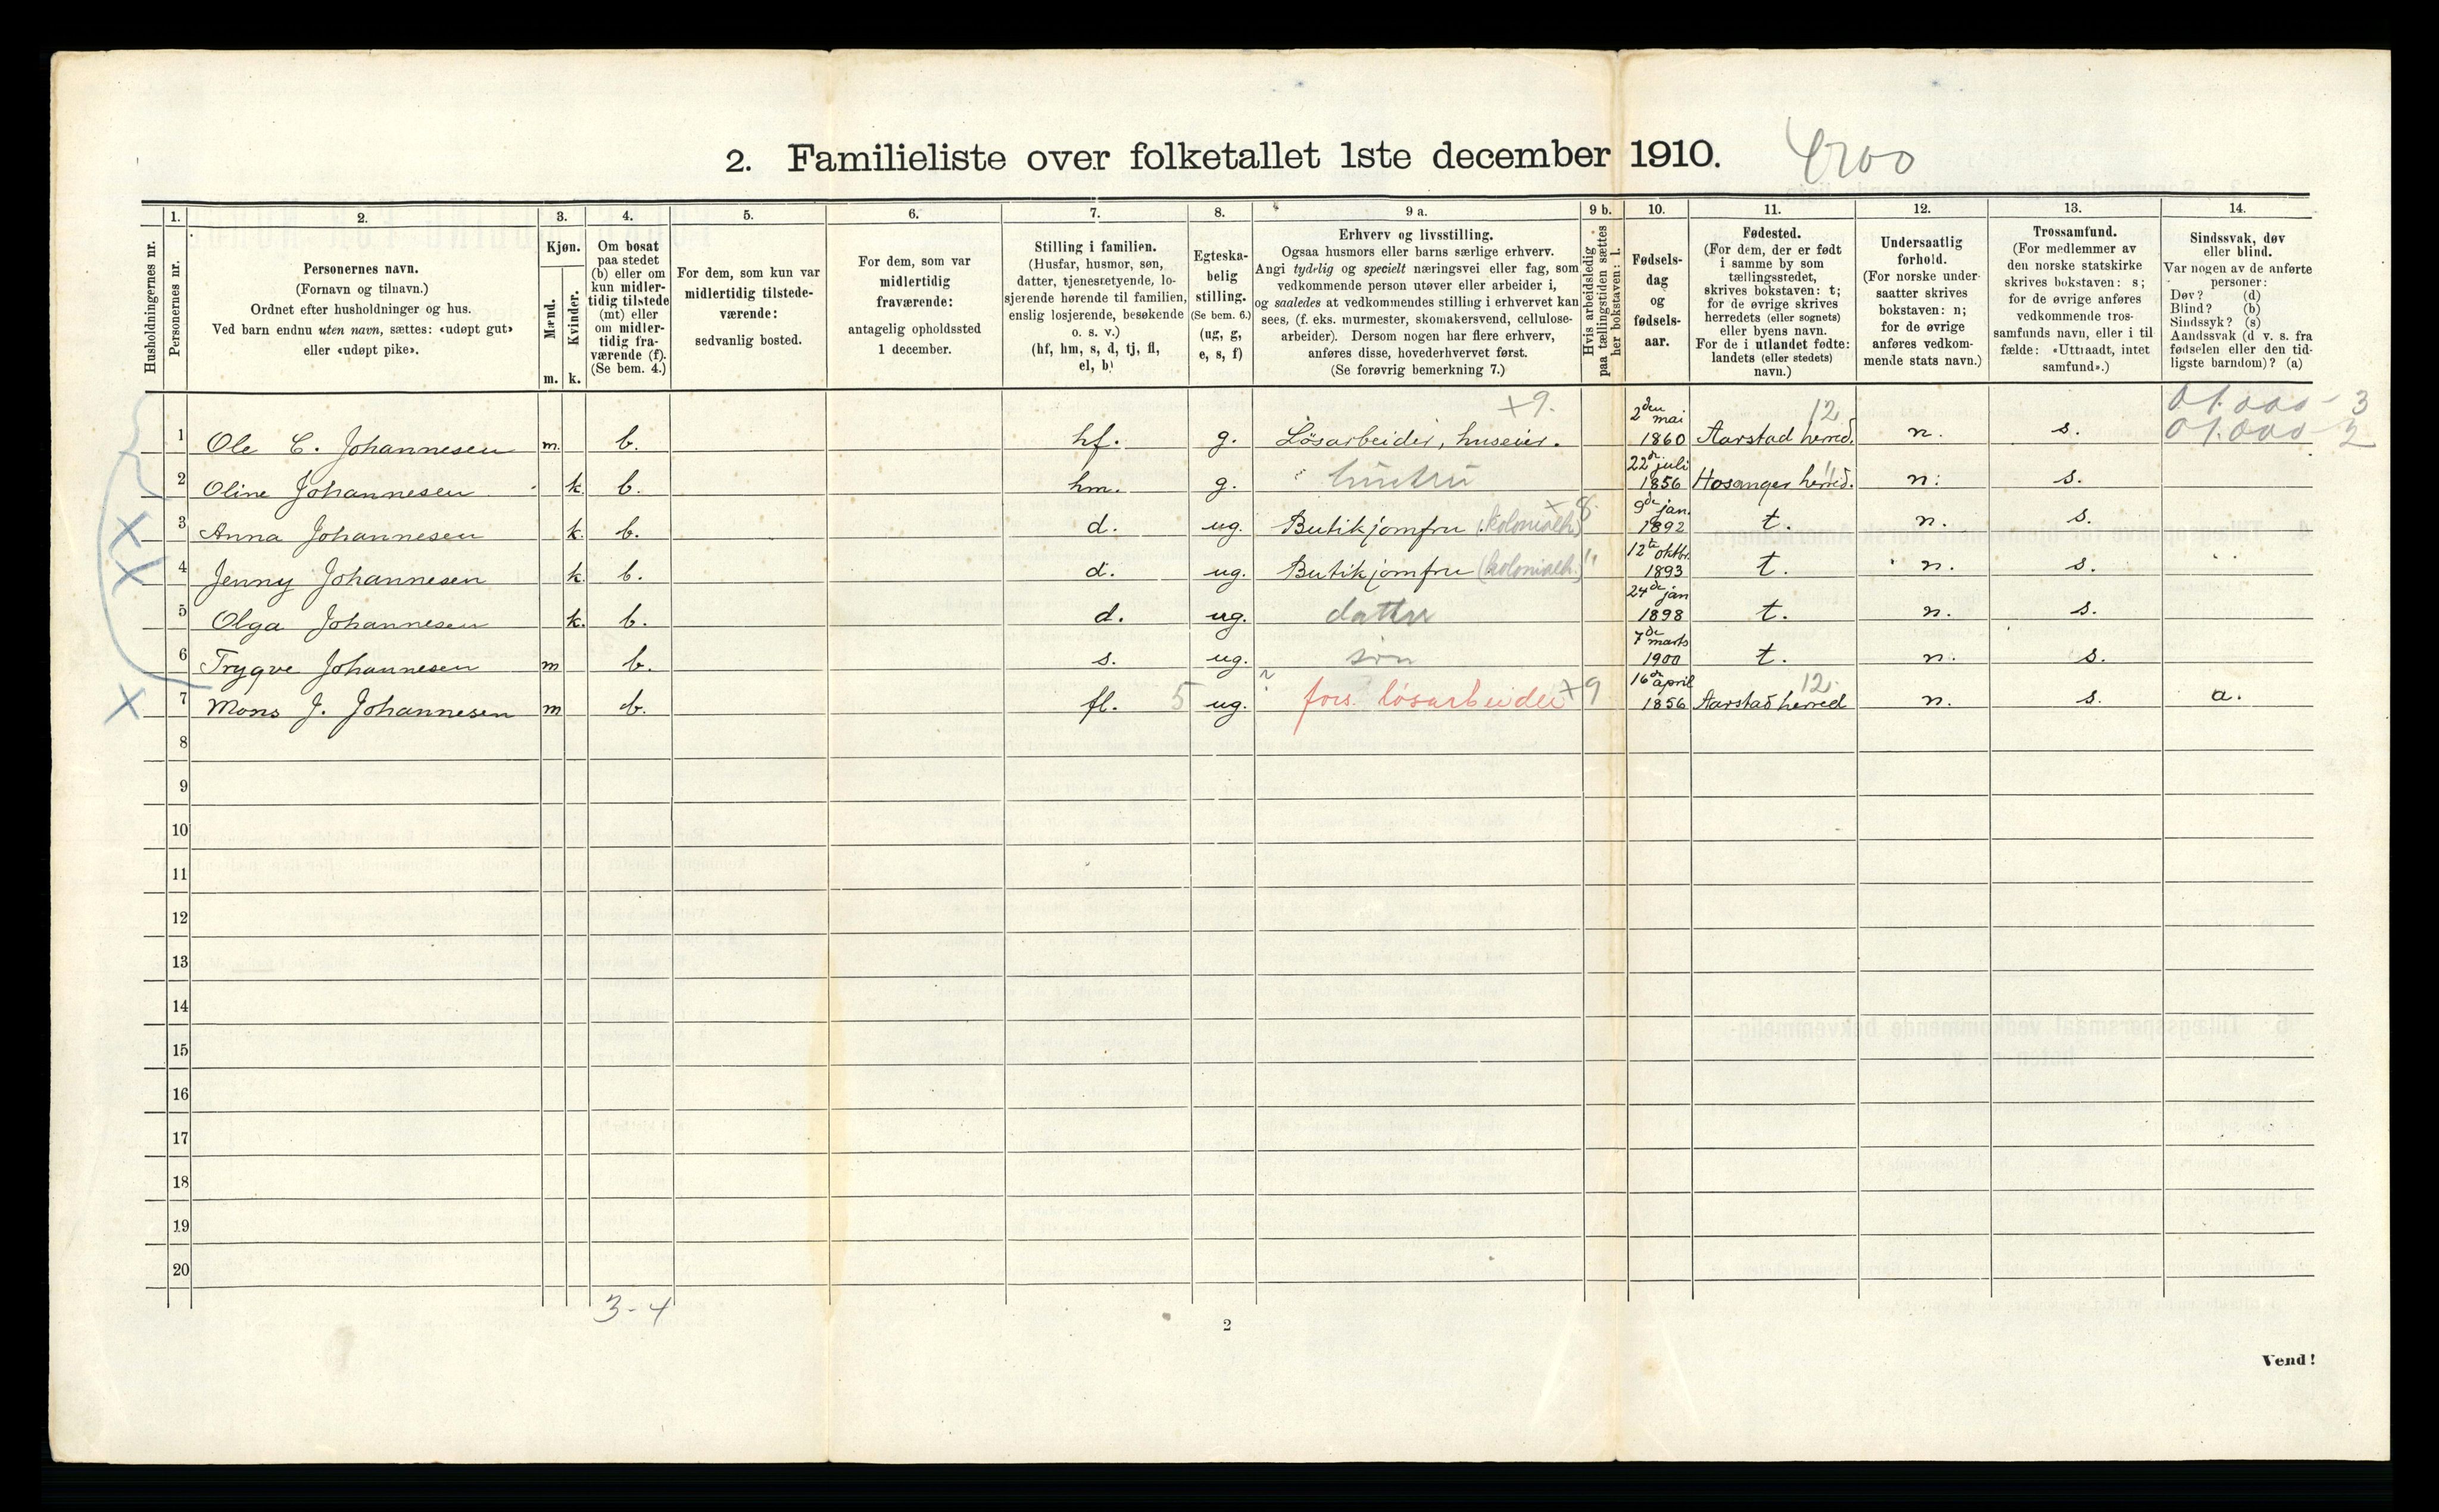 2. Familieliste over folketallet 1ste december 1910. 4200
Husholdningernes nr.
1.
Personernes nr.
2.
Personernes navn.
(Fornavn og tilnavn.)
Ordnet efter husholdninger og hus.
Ved barn endnu uten navn, sættes: «udøpt gut»
eller «udøpt pike».
3.
Kjøn.
Mænd.
Kvinder.
m. k.
4.
Om bosat
paa stedet
(b) eller om
kun midler-
tidig tilstede
(mt) eller
om midler-
tidig fra-
værende (f).
(Se bem. 4.)
5.
For dem, som kun var
midlertidig tilstede-
værende:
sedvanlig bosted.
6.
For dem, som var
midlertidig
fraværende:
antagelig opholdssted
1 december.
7.
Stilling i familien.
(Husfar, husmor, søn,
datter, tjenestetyende, lo-
sjerende hørende til familien,
enslig losjerende, besøkende
o. s. v.)
(hf, hm, s, d, tj, fl,
el, b)
8.
Egteska-
belig
stilling.
(Se bem. 6.)
(ug, g,
e, s, f)
9 a.
Erhverv og livsstilling.
Ogsaa husmors eller barns særlige erhverv.
Angi tydelig og specielt næringsvei eller fag, som
vedkommende person utøver eller arbeider i,
og saaledes at vedkommendes stilling i erhvervet kan
sees, (f. eks. murmester, skomakersvend, cellulose-
arbeider). Dersom nogen har flere erhverv,
anføres disse, hovederhvervet først.
(Se forøvrig bemerkning 7.)
9 b.
Hvis arbeidsledig
paa tællingstiden sættes
her bokstaven: l.
10.
Fødsels-
dag
og
fødsels-
aar.
11.
Fødested.
(For dem, der er født
i samme by som
tællingsstedet,
skrives bokstaven: t;
for de øvrige skrives
herredets (eller sognets)
eller byens navn.
For de i utlandet fødte:
landets (eller stedets)
navn.)
12.
Undersaatlig
forhold.
(For norske under-
saatter skrives
bokstaven: n;
for de øvrige
anføres vedkom-
mende stats navn.)
13.
Trossamfund.
(For medlemmer av
den norske statskirke
skrives bokstaven: s;
for de øvrige anføres
vedkommende tros-
samfunds navn, eller i til
fælde: «Uttraadt, intet
samfund».)
14.
Sindssvak, døv
eller blind.
Var nogen av de anførte
personer:
Døv? (d)
Blind? (b)
Sindssyk? (s)
Aandssvak (d. v. s. fra
fødselen eller den tid-
ligste barndom)? (a)
+9. 2den mai 12 01.000-3
1 Ole C. Johannesen m. b. hf. g. Løsarbeider, huseier. 1860 Aarstad herred. n. s. 01.000-2
22de juli
2 Oline Johannesen k. b. hm. g. hustru 1856 Hosanger herred. n. s.
x8. 9de jan.
3 Anna Johannesen k. b. d. ug. Butikjomfru (kolonialh.) 1892 t. n. s.
12te oktbr.
4 Jenny Johannesen k. b. d. ug. Butikjomfru (kolonialh.) " 1893 t. n. s.
24de jan
5 Olga Johannesen k. b. d. ug. datter 1898 t. n. s.
7de marts
6 Trygve Johannesen m b. s. ug. søn 1900 t. n. s.
16de april 12.
7 Mons J. Johannesen m b. fl. 5 ug. fors. løsarbeider +9 1856 Aarstad herred n. s. a.
8
9
10
11
12
13
14
15
16
17
18
19
20
3-4
2
Vend!